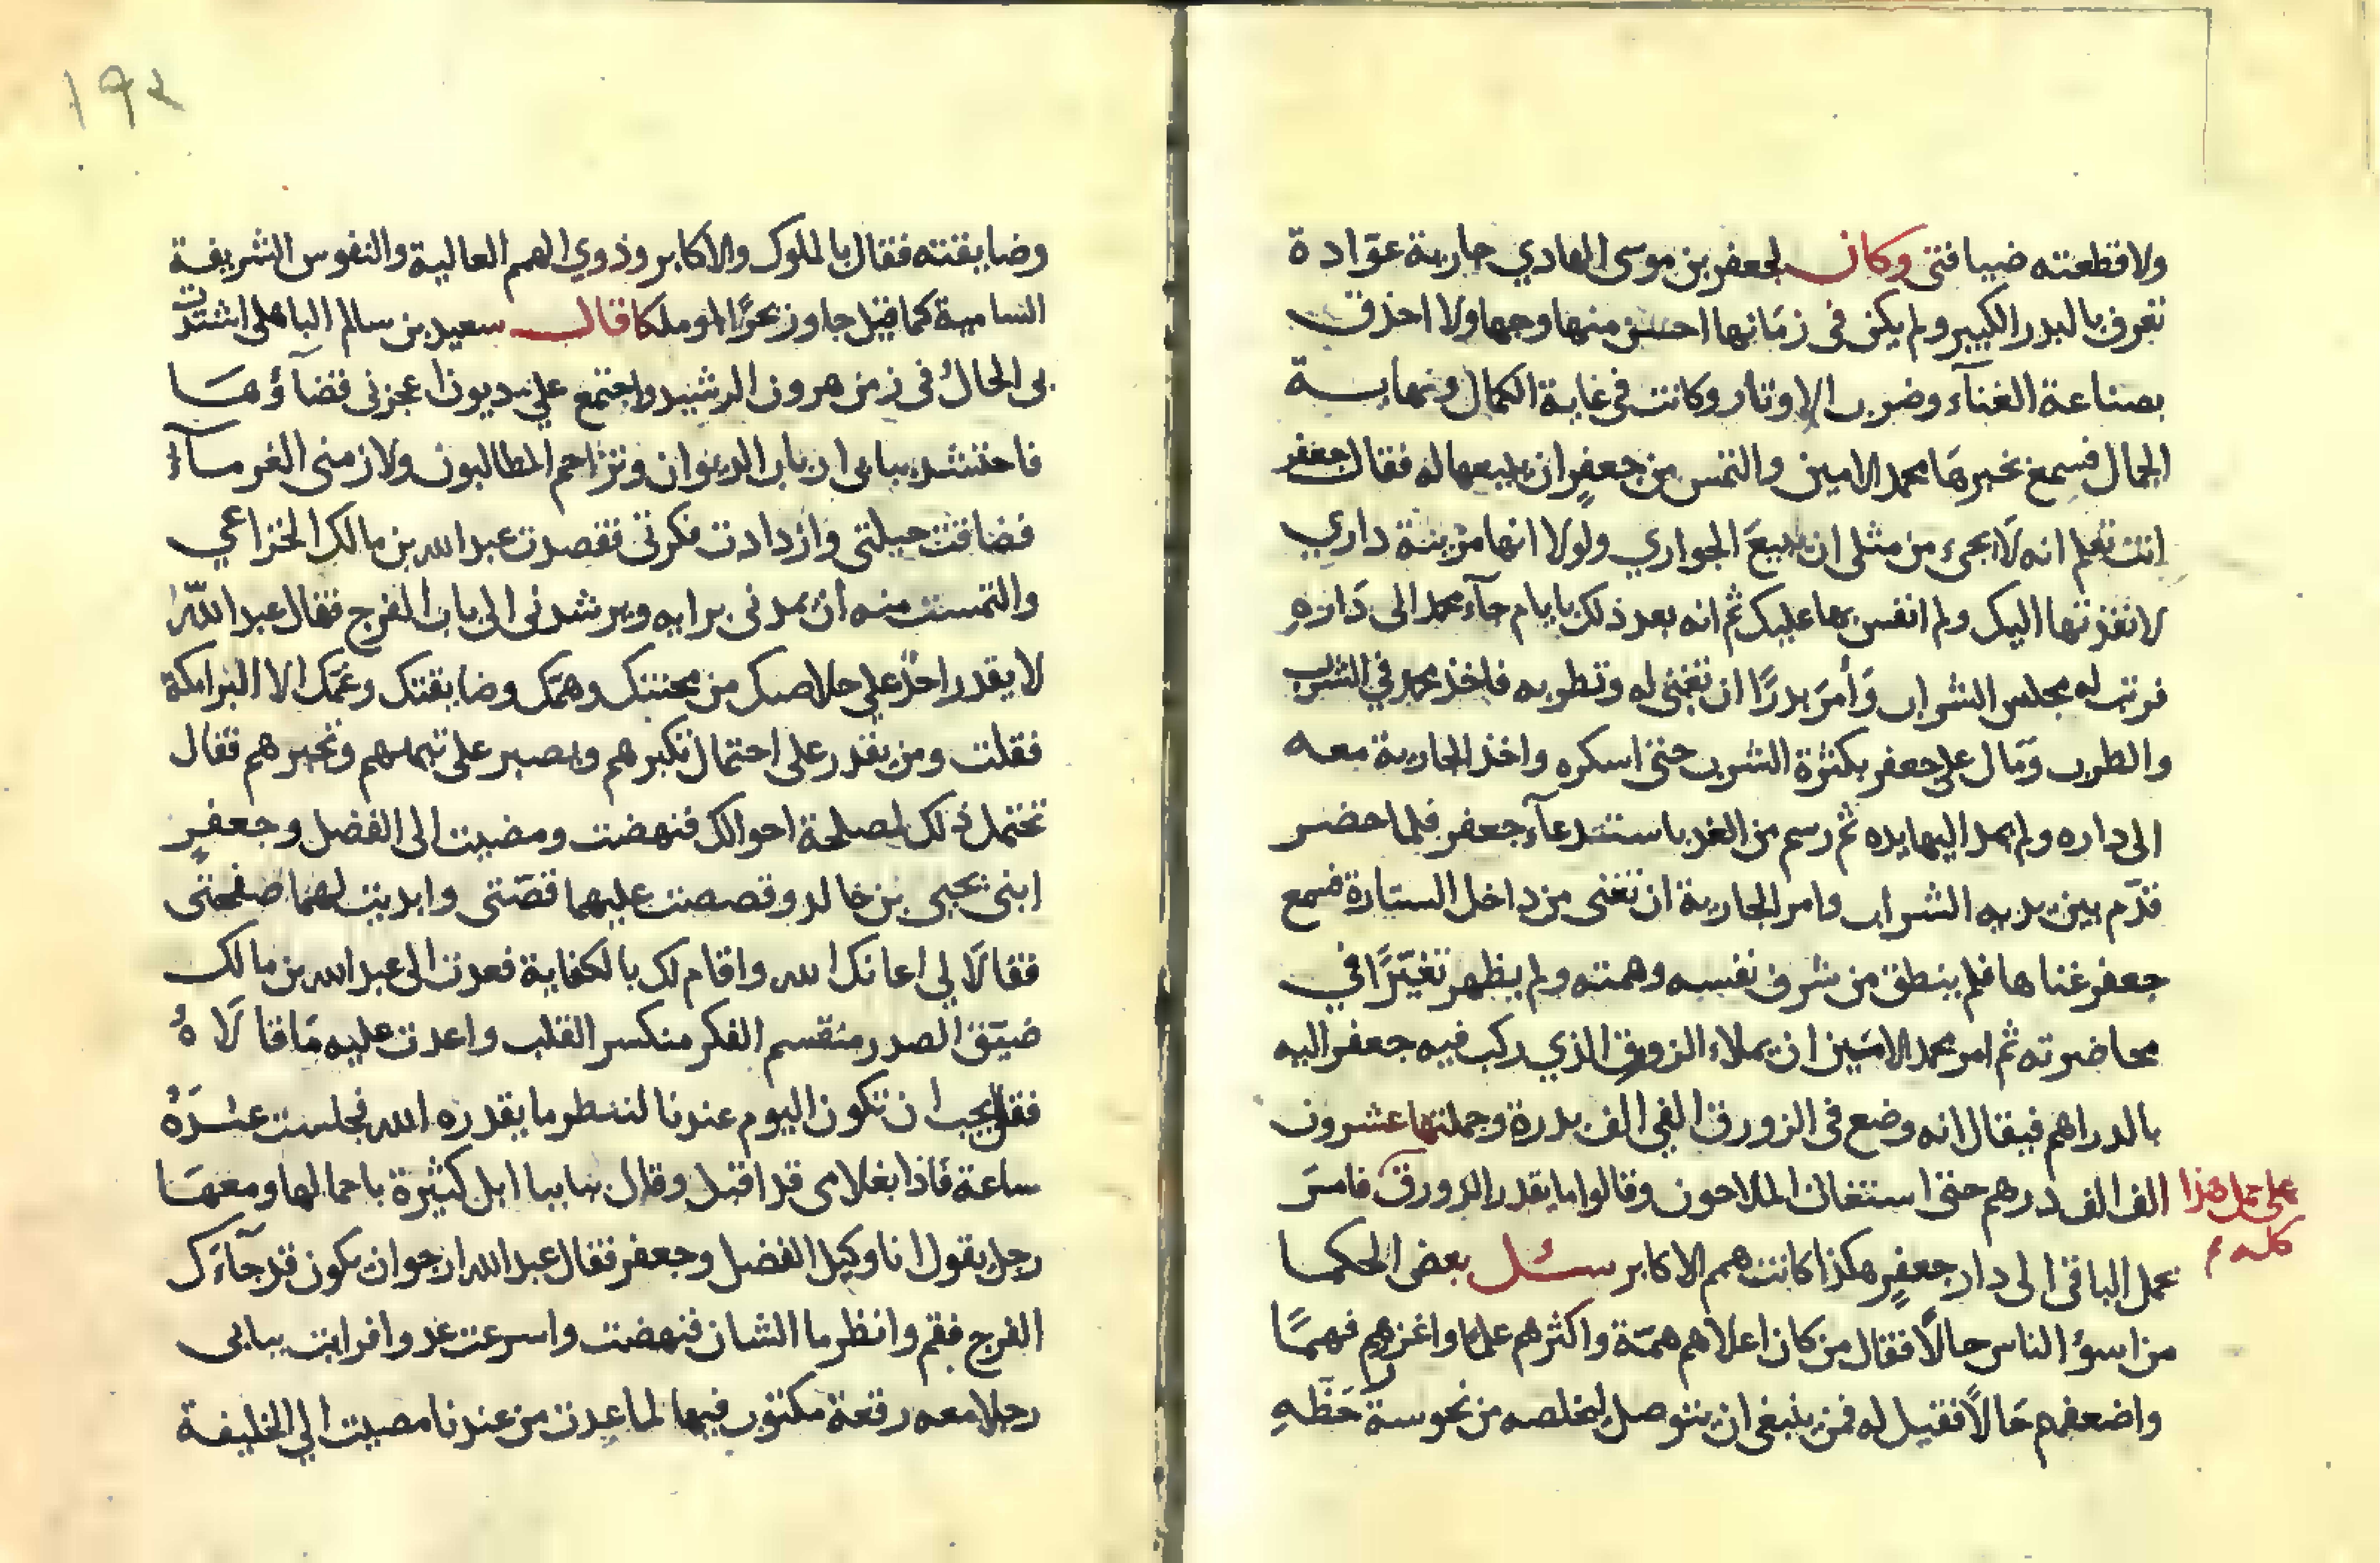 ولا قطعته ضيافتى وكان لجعفر بن موسى الهادي جارية عوّادة
تعرف بالبدر الكبير ولم يكن فى زمانها احسن منها وجها ولا احذق
بصناعة الغنآء وضرب الاوتار وكانت فى غاية الكمال ونهاية
الجمال فسمع بخبرها محمد الامين والتمس من جعفرٍ ان يبيعها له فقال جعفر
انت تعلم انه لا يجىء من مثلى ان يبيعَ الجواري ولولا انها مزينة داري
لانفذتها اليك ولم انفس بها عليك ثم انه بعد ذلك بايام جآء محمد الى دَارهِ
فرتب له مجلس الشراب وَأمرَ بدرًا ان تغنى له وتطربه فاخذ محمد في الشرب
والطرب وَمال على جعفر بكثرة الشرب حتى اسكره واخذ الجارية معه
الى داره ولم يمد اليها يده ثم رسم من الغد باستدعآء جعفر فلما حضر
قدّم بين يديه الشراب وامر الجارية ان تغنى من داخل الستارة فسمع
جعفر غناها فلم ينطق من شرف نفسه وهمته ولم يظهر تغيّرًا في
محاضرته ثم امر محمد الامين ان يملاء الزورق الذي ركب فيه جعفر اليه
بالدراهم فيقال انه وضع فى الزورق الفى الف بدرة وجملتها عشرون
الف الف درهم حتى استغاث الملاحون وقالوا ما يقدر الزورق فامرَ
على حمل هذا
كله م
بحمل الباقى الى دار جعفرٍ هكذا كانت همم الاكابر سئل بعض الحكما
من اسؤ الناس حالًا فقال من كان اعلاهم همّة واكثرهم علمًا واغزرهم فهمًا
واضعفهم حَالًا فقيل له فمن ينبغى ان يتوصل ليخلصه من نحوسة حَظّهِ
١٩٤
وضايقته فقال بالملوك والاكابر وذوي الهمم العالية والنفوس الشريفة
السامية كما قيل جاوز بحرًا او ملكا قال سعيد بن سالم الباهلى اشتدّت
بى الحالُ فى زمن هرون الرشيد واجتمع على ديون اعجزنى قضآؤها
فاحتشد ببابى ارباب الديوان وتزاحم المطالبون ولازمنى الغرمآء
فضاقت حيلتى وازدادت فكرتى فقصدت عبد الله بن مالك الخزاعي
والتمست منه ان يمدنى برايه ويرشدنى الى باب الفرج فقال عبد الله
لا يقدر احدٌ على خلاصك من محنتك وهمّك وضايقتك وغمّك الا البرامكة
فقلت ومن يقدر على احتمال تكبرهم ويصبر على تيههم وتجبرهم فقال
تحتمل ذلك لمصلحة احوالك فنهضت ومضيت الى الفضل وجعفرٍ
ابنى يحيى بن خالد وقصصت عليهما قصّتى وابديت لهما صفحتى
فقالَا لي اعانك الله واقام لك بالكفاية فعدت الى عبد الله بن مالك
ضيّق الصدر منقسم الفكر منكسر القلب واعدت عليه مَا قالَاهُ
فقال يجب ان تكون اليوم عندنا لننظر ما يقدره الله فجلست عندَهُ
ساعة فاذا بغلامى قد اقبل وقال ببابنا ابل كثيرة باحمالها ومعهَا
رجل يقول انا وكيل الفضل وجعفر فقال عبد الله ارجو ان يكون قد جآءك
الفرج فقم وانظر ما الشان فنهضت واسرعت عدوا فرايت ببابى
رجلا معه رقعة مكتوب فيها لما عدت من عندنا مضيت الي الخليفة